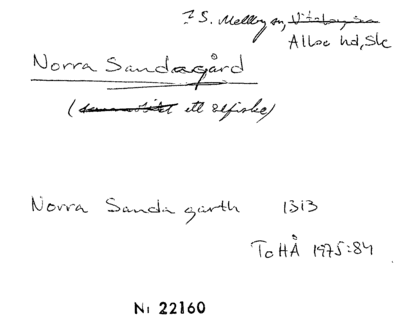 i S. Mellby sn,
Albo hd, Sk
Norra Sandagård
( ett ålfiske)
Norra Sanda garth 1313
ToHÅ 1975:84
N: 22160